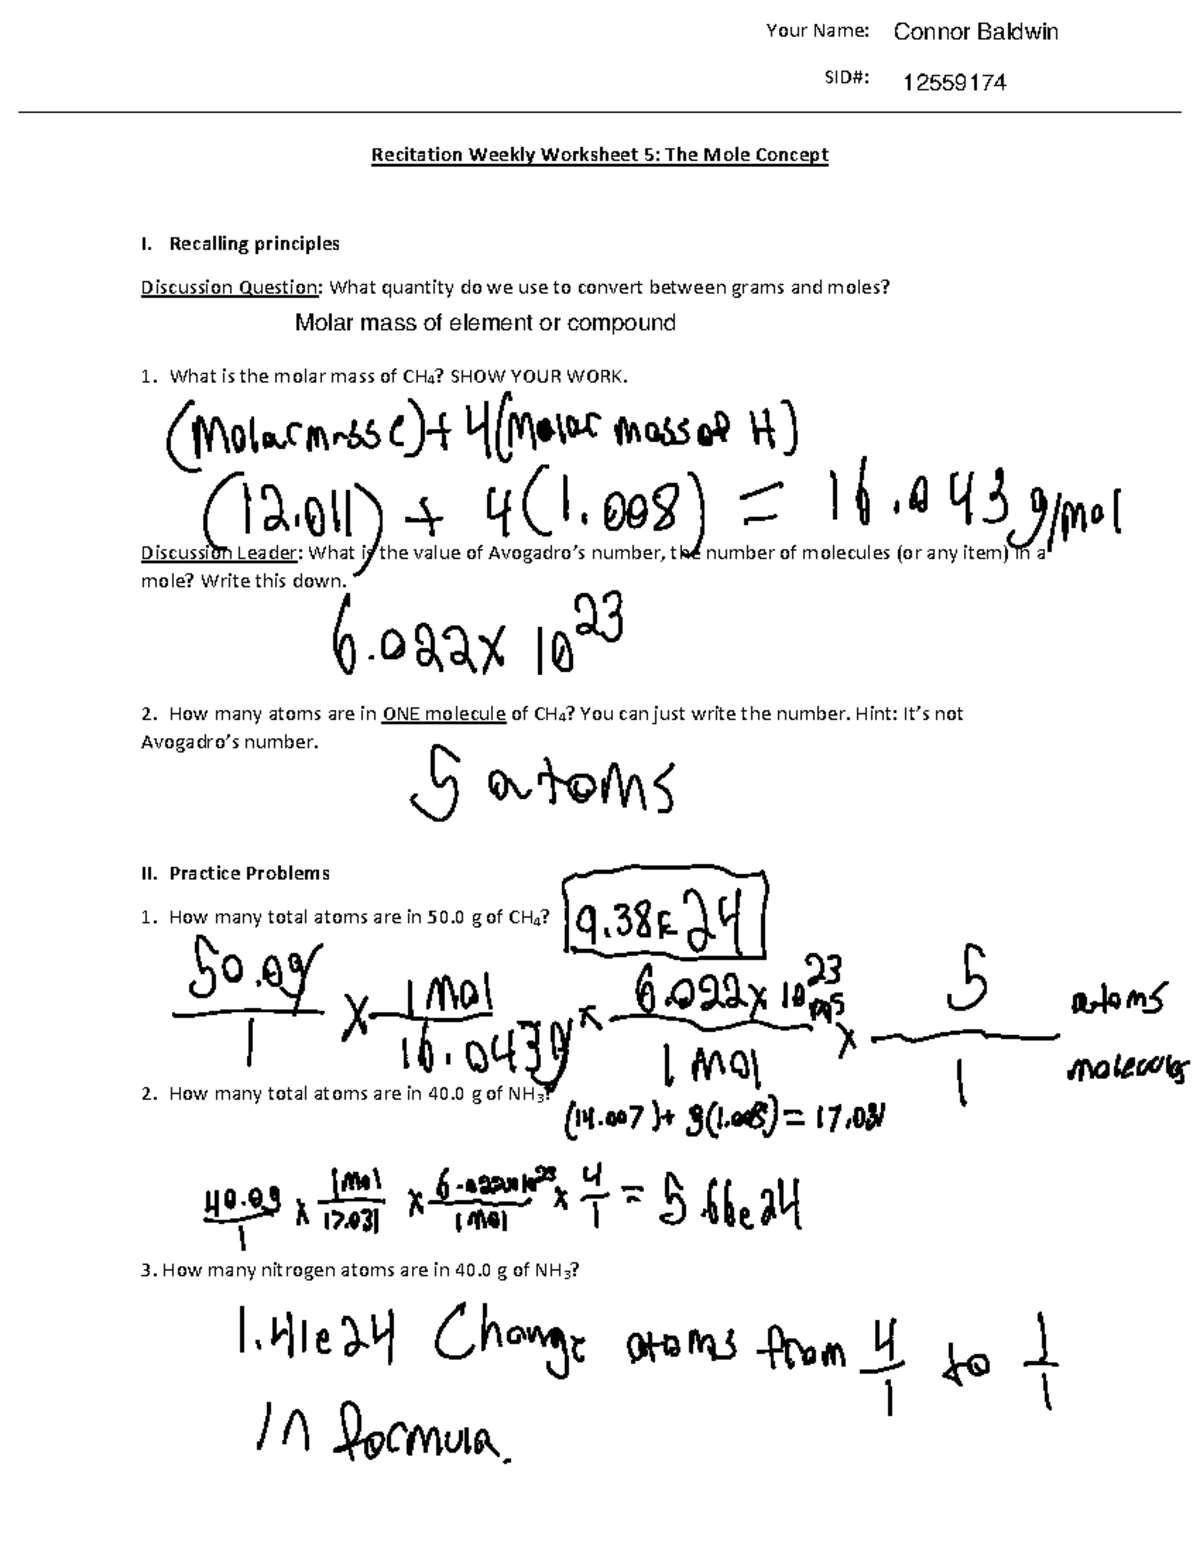 Your Name: Connor Baldwin
SID#: 12559174
Recitation Weekly Worksheet 5: The Mole Concept
I. Recalling principles
Discussion Question: What quantity do we use to convert between grams and moles?
Molar mass of element or compound
1. What is the molar mass of CH₄? SHOW YOUR WORK.
(Molar mass C) + 4(Molar mass of H)
(12.011) + 4(1.008) = 16.043 g/mol
Discussion Leader: What is the value of Avogadro's number, the number of molecules (or any item) in a
mole? Write this down.
6.022 x 10²³
2. How many atoms are in ONE molecule of CH₄? You can just write the number. Hint: It's not
Avogadro's number.
5 atoms
II. Practice Problems
1. How many total atoms are in 50.0 g of CH₄? 9.38E24
50.0g/1 x 1 Mol/16.043g x 6.022 x 10²³/1 Mol x 5/1 atoms molecules
2. How many total atoms are in 40.0 g of NH₃?
(14.007)+ 3(1.008) = 17.031
40.0g/1 x 1 Mol/17.031 x 6.022x10²³/1 Mol x 4/1 = 5.66e24
3. How many nitrogen atoms are in 40.0 g of NH₃?
1.41e24 Change atoms from 4/1 to 1/1
in formula.